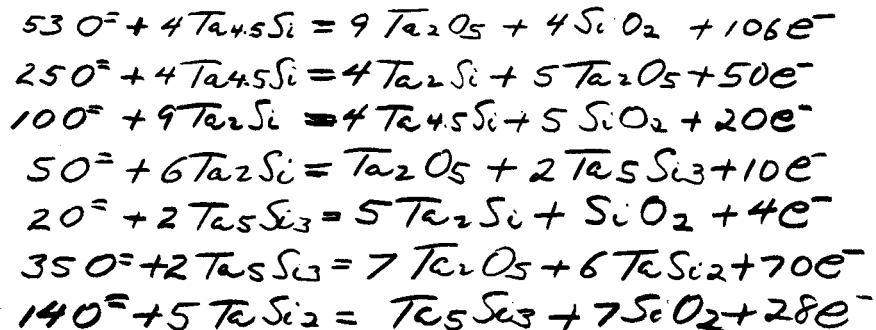 53 O⁼ + 4 Ta4.5Si = 9 Ta2O5 + 4 SiO2 + 106e⁻
25O⁼ + 4 Ta4.5Si = 4 Ta2Si + 5 Ta2O5 + 50e⁻
10O⁼ + 9 Ta2Si = 4 Ta4.5Si + 5 SiO2 + 20e⁻
5O⁼ + 6Ta2Si = Ta2O5 + 2 Ta5Si3 + 10e⁻
2O⁼ + 2 Ta5Si3 = 5 Ta2Si + SiO2 + 4e⁻
35O⁼ + 2 Ta5Si3 = 7 Ta2O5 + 6 TaSi2 + 70e⁻
14O⁼ + 5 TaSi2 = Ta5Si3 + 7SiO2 + 28e⁻